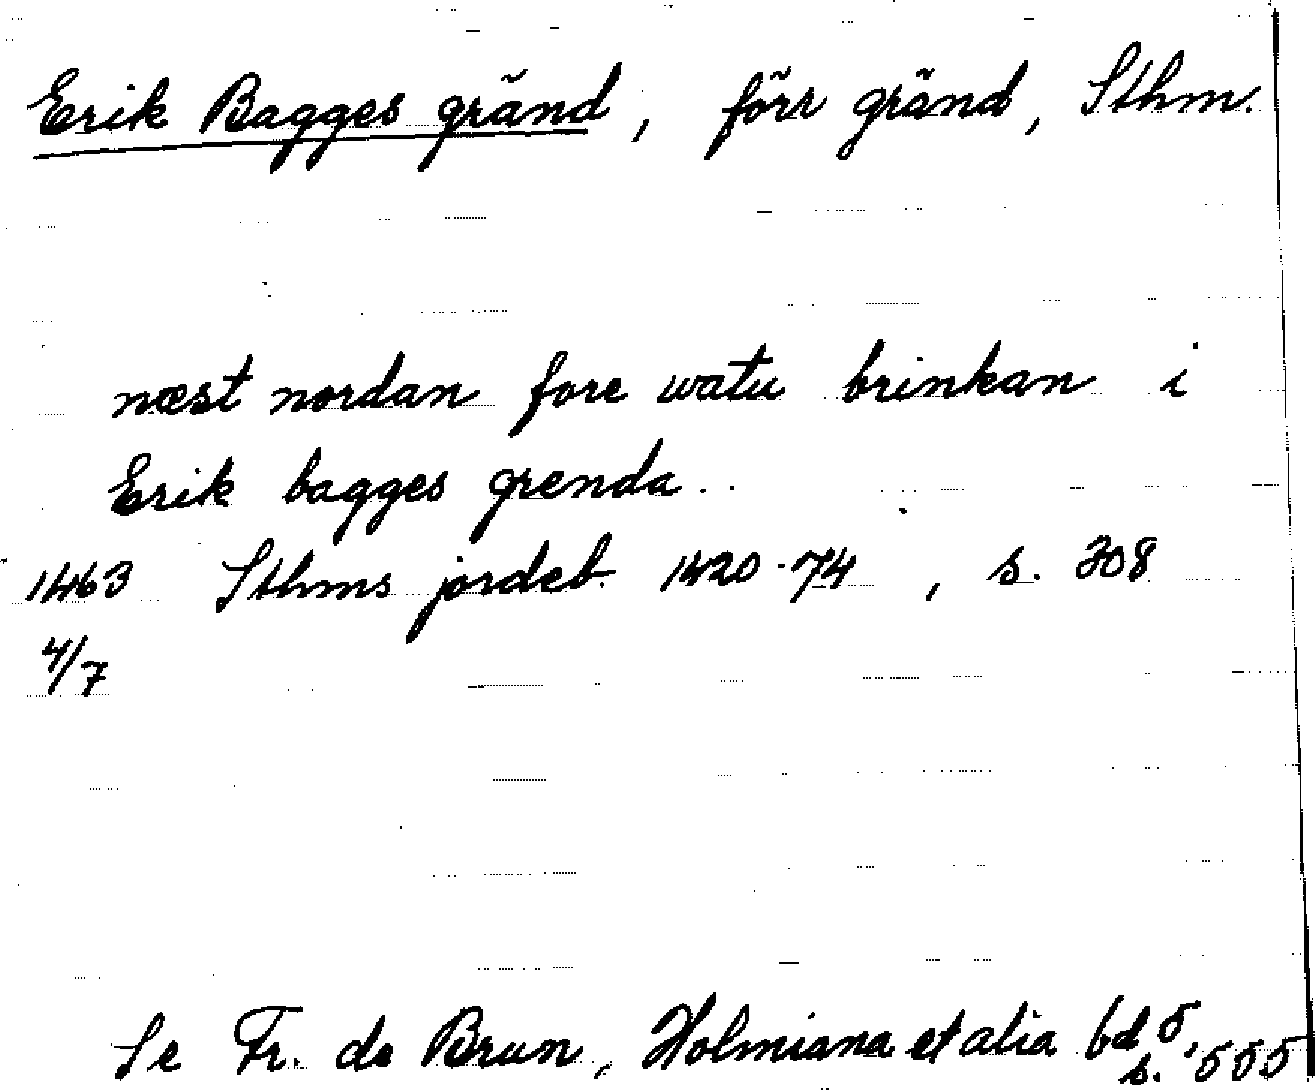 Erik Bagges gränd, förr gränd, Sthm.
næst nordan fore watu brinkan i
Erik bagges grenda..
1463 Sthms jordeb. 1420-74, s. 308
4/7
Se Fr. de Brun, Holmiana et alia bd 5,
s. 555